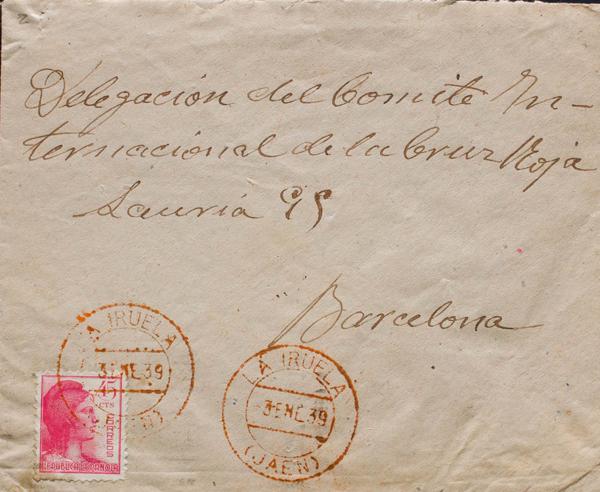 2
Delegación del Comité In-
ternacional de la Cruz Roja
Lauria 95
Barcelona
LA IRUELA
3 ENE. 39
(JAEN)
LA IRUELA
3 ENE. 39
(JAEN)
45
CTS
CORREOS
REPUBLICA ESPAÑOLA